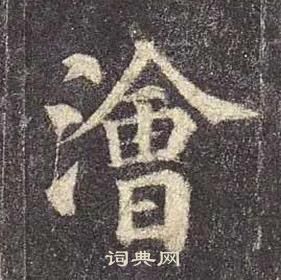 澮
词典网